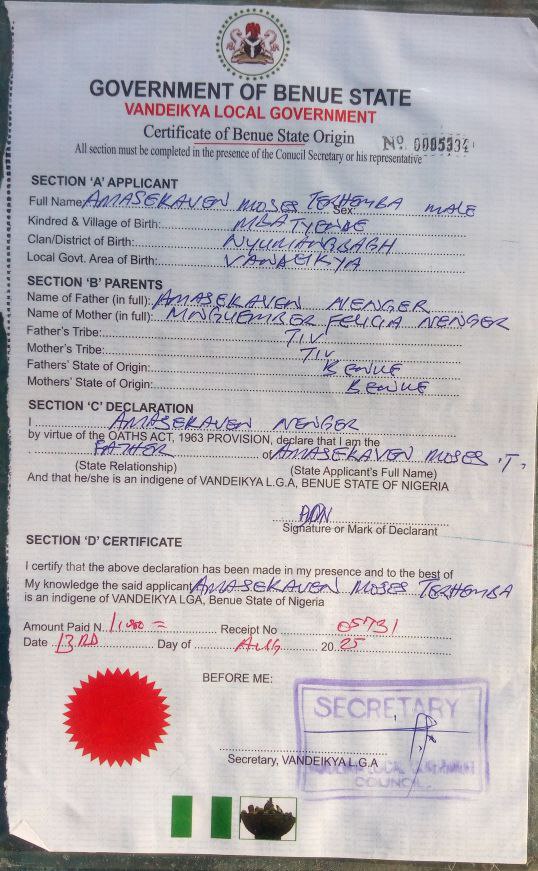 GOVERNMENT OF BENUE STATE
VANDEIKYA LOCAL GOVERNMENT
Certificate of Benue State Origin
No. 0005334
All section must be completed in the presence of the Conucil Secretary or his representative
SECTION 'A' APPLICANT
Full Name: AMASEKAVEN MOSES TERHEMBA Sex: MALE
Kindred & Village of Birth: MBATYENDE
Clan/District of Birth: NYUMANGBAGH
Local Govt. Area of Birth: VANDEIKYA
SECTION 'B' PARENTS
Name of Father (in full): AMASEKAVEN NENGER
Name of Mother (in full): MNGUEMBER FELICIA NENGER
Father's Tribe: TIV
Mother's Tribe: TIV
Fathers' State of Origin: BENUE
Mothers' State of Origin: BENUE
SECTION 'C' DECLARATION
I AMASEKAVEN NENGER
by virtue of the OATHS ACT, 1963 PROVISION, declare that I am the
FATHER of AMASEKAVEN MOSES .T.
(State Relationship) (State Applicant's Full Name)
And that he/she is an indigene of VANDEIKYA L.G.A, BENUE STATE OF NIGERIA
Signature or Mark of Declarant
SECTION 'D' CERTIFICATE
I certify that the above declaration has been made in my presence and to the best of
My knowledge the said applicant AMASEKAVEN MOSES TERHEMBA
is an indigene of VANDEIKYA LGA, Benue State of Nigeria
Amount Paid N 1,000 = Receipt No 05731
Date 13RD Day of AUG 20 25
BEFORE ME:
SECRETARY
Secretary, VANDEIKYA L.G.A
COUNCIL